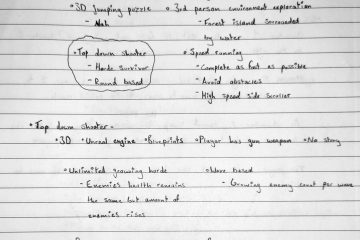 • 3D Jumping puzzle
- Meh
• 3rd person environment exploration
- Forest island surrounded
by water
• Top down shooter
- Horde survivor
- Round based
• Speed running
- Complete as fast as possible
- Avoid obstacles
- High speed side scroller
• Top down shooter -
• 3D • Unreal engine • Blueprints • Player has gun weapon • No story
• Unlimited growing horde
- Enemies health remains
the same but amount of
enemies rises
• Wave based
- Growing enemy count per wave